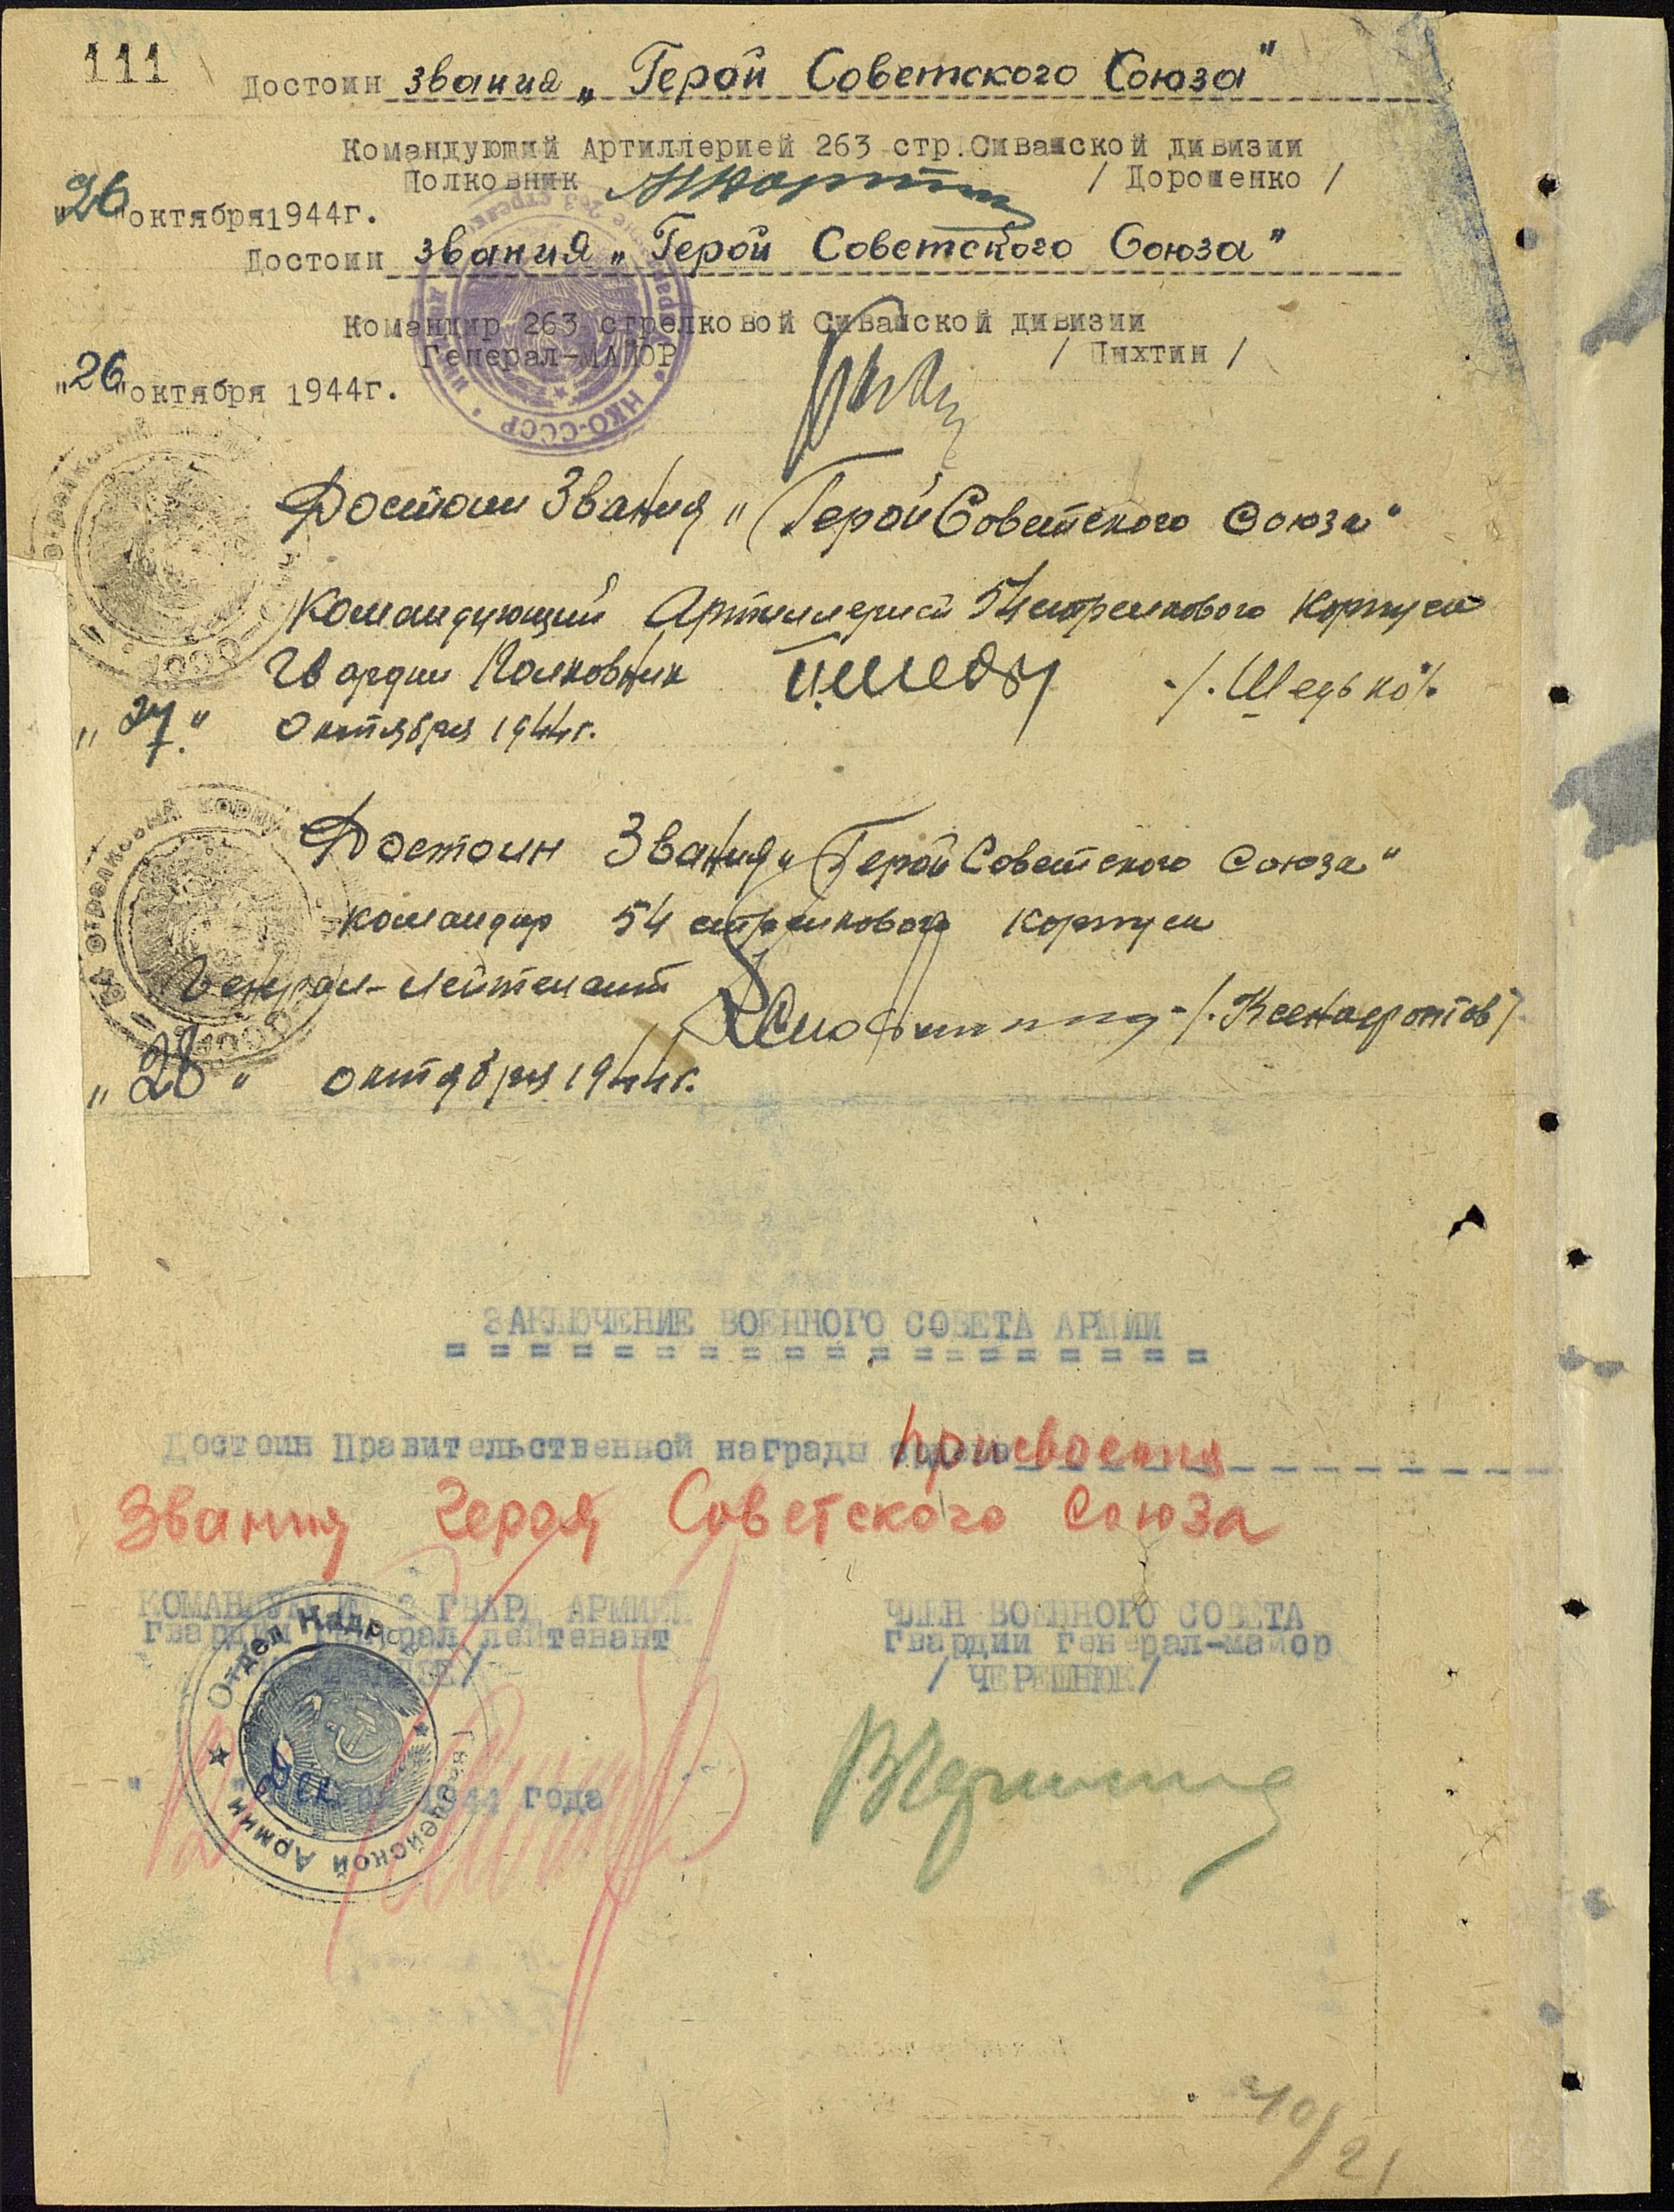 111
Достоин звания „Герой Советского Союза"
Командующий Артиллерией 263 стр.Сивашской дивизии
Полковник / Дорошенко /
"26"октября1944г.
Достоин звания „Герой Советского Союза"
Командир 263 стрелковой Сивашской дивизии
Генерал-МАЙОР / Пыхтин /
"26"октября 1944г.
НКО-СССР
Достоин Звания „Герой Советского Союза"
Командующий Артиллерией 54 стрелкового Корпуса
Гвардии Полковник -/.Шедько/.
"27." Октября 1944г.
Достоин Звания „Герой Советского Союза"
Командир 54 стрелкового Корпуса
Генерал-Лейтенант -/.Ксенофонтов/.
"28" октября 1944г.
ЗАКЛЮЧЕНИЕ ВОЕННОГО СОВЕТА АРМИИ
Достоин Правительственной награды присвоения
Звания Героя Советского Союза
КОМАНДУЮЩИЙ 2 ГВАРД АРМИЕЙ
гвардии генерал лейтенант
ЧЛЕН ВОЕННОГО СОВЕТА
гвардии генерал-майор
/ ЧЕРЕШНЮК/
Отдел Кадров Гвардейской Армии
1944 года
210/21